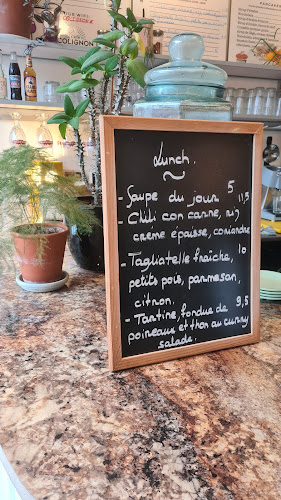 COLIGNON
Lunch.
- Soupe du jour 5
- Chili con carne, riz 11,5
crème épaisse, coriandre
- Tagliatelle fraîche, 10
petits pois, parmesan,
citron.
- Tartine, fondue de 9,5
poireaux et thon au curry
salade.